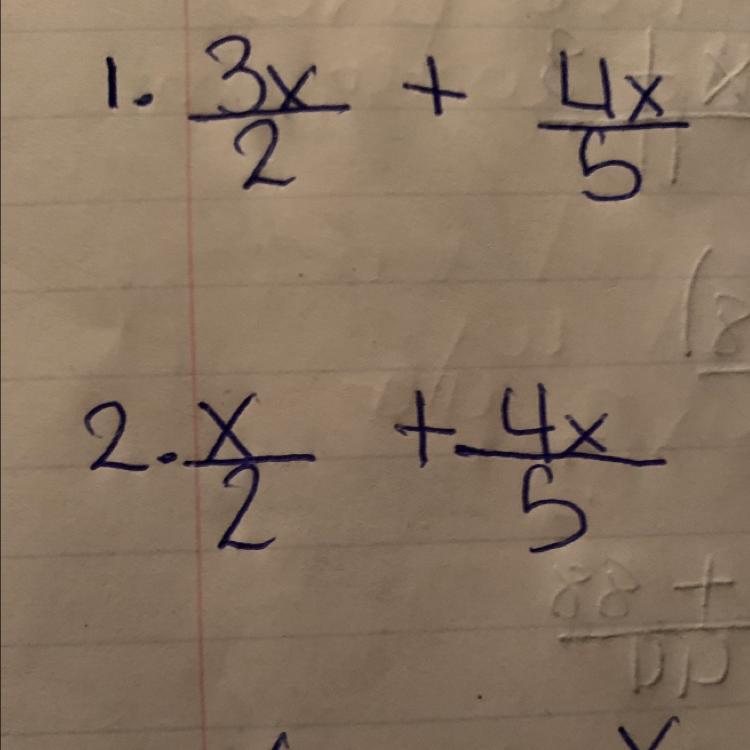 1. 3x/2 + 4x/5
2. x/2 + 4x/5